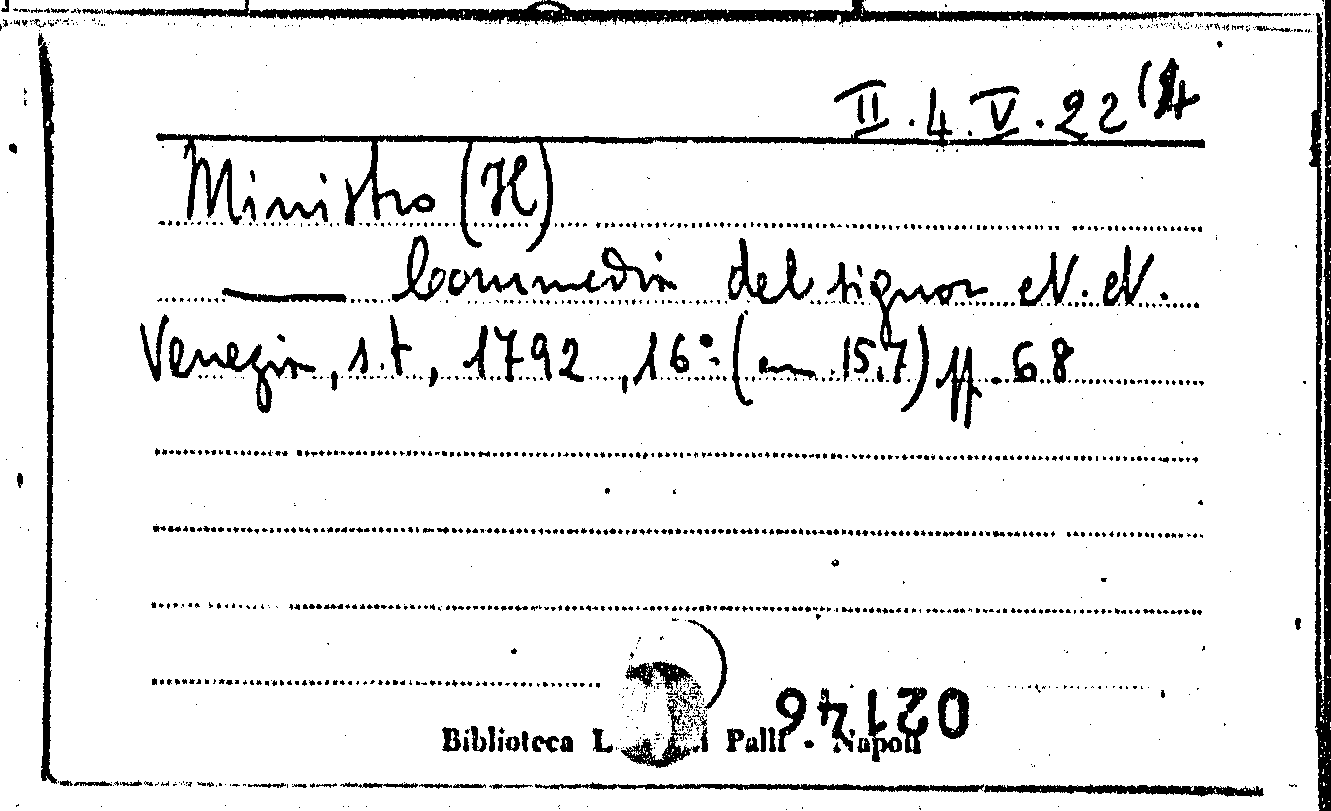 II.4.V.22(4
Ministro (Il)
—— Commedia del signor N. N.
Venezia, s.t, 1792, 16º (cm 15,7) pp. 68
021746
Biblioteca L Palli - Napoli